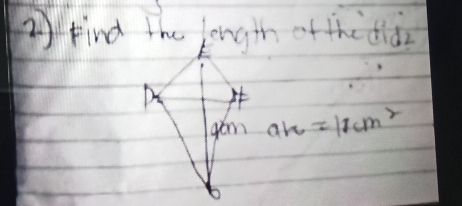 2) Find the length of the side
E
D F
9cm are = 18cm²